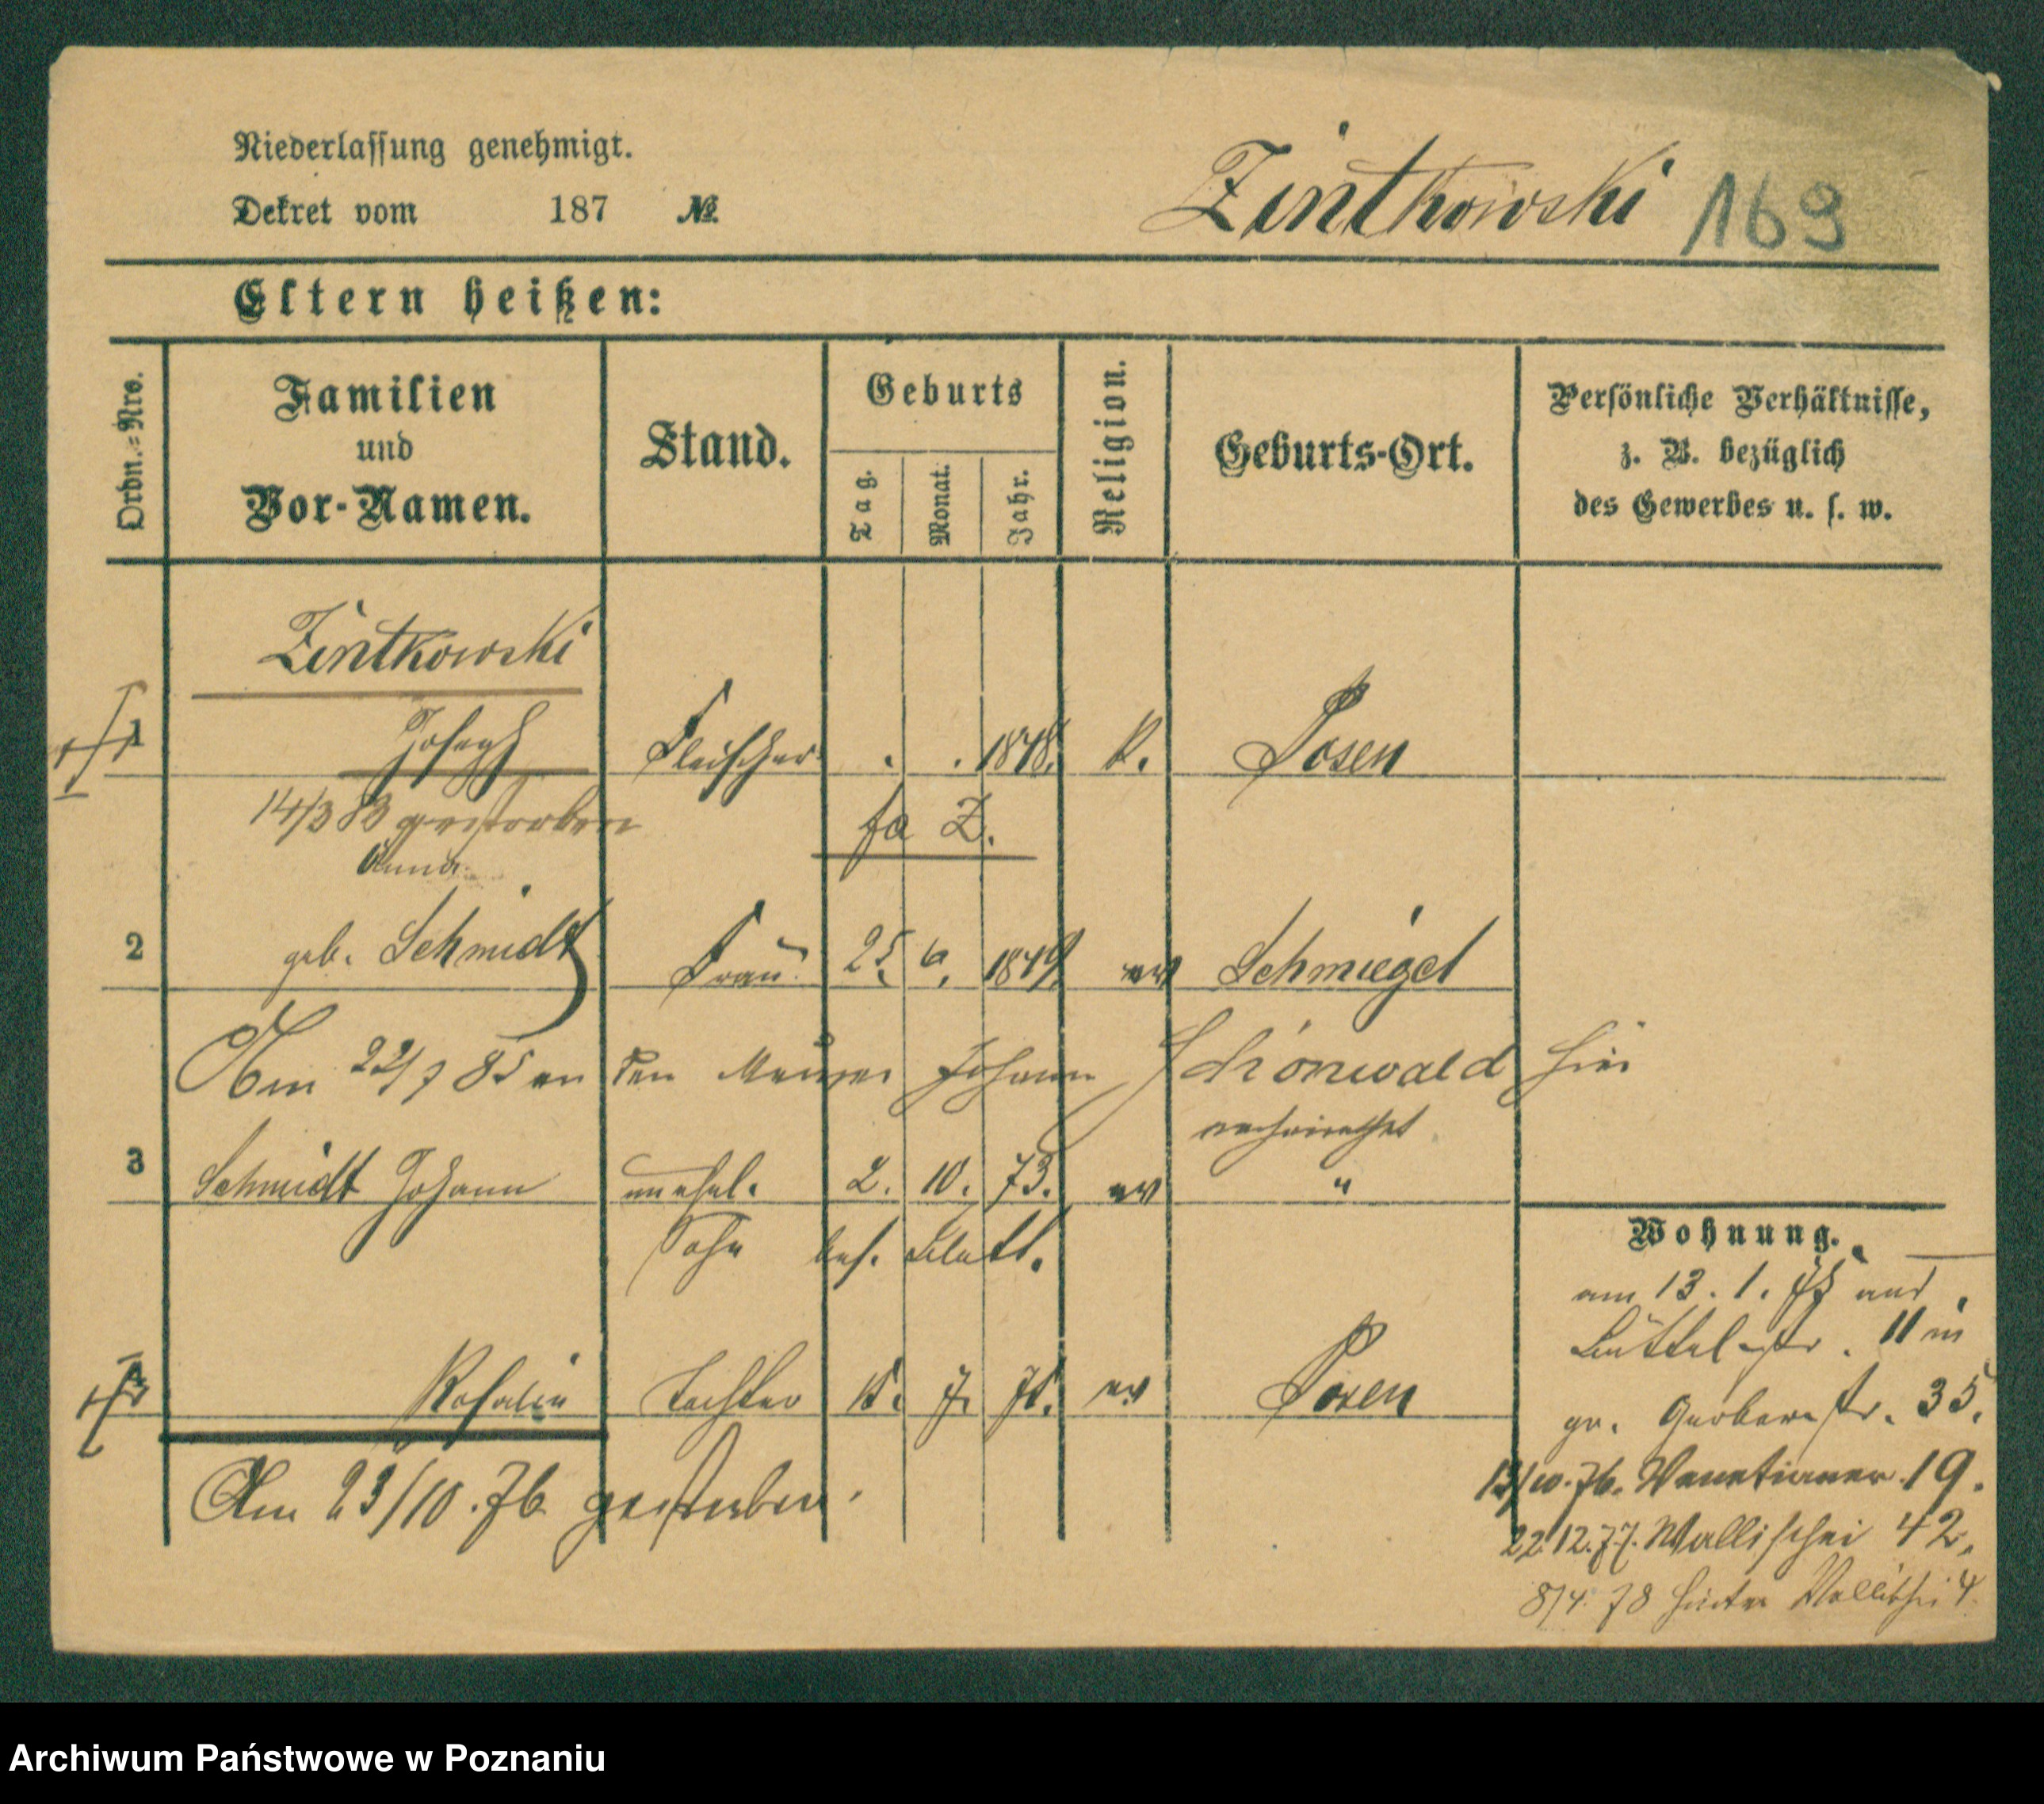 Niederlassung genehmigt.
Dekret vom 187 №
Zintkowski 169
Eltern heißen:
Ordn.=Nro.
Familien
und
Vor-Namen.
Stand.
Geburts
Tag.
Monat.
Jahr.
Religion.
Geburts-Ort.
Persönliche Verhältnisse,
z. B. bezüglich
des Gewerbes u. s. w.
Zintkowski
1 Joseph Fleischer . . 1848. k. Posen
14/3 83 gestorben
fa Z.
Anna
2 geb. Schmidt Frau 25. 6. 1849 ev Schmiegel
Am 22/7 85 an den Maurer Johann Schönwald hier
verheirathet
3 Schmidt Johann unehel. 2. 10. 73. ev "
Sohn bes. Blatt.
4 Rosalie Tochter 15. 7. 75. ev Posen
Am 23/10.76 gestorben.
Wohnung.
am 13. 1. aus
Büttelstr. 11 in
gr. Gerberstr. 35.
13/10.76. Venetianer 19.
22.12.77. Wallischei 42.
8/4. 78 hinter Wallischei 4.
Archiwum Państwowe w Poznaniu